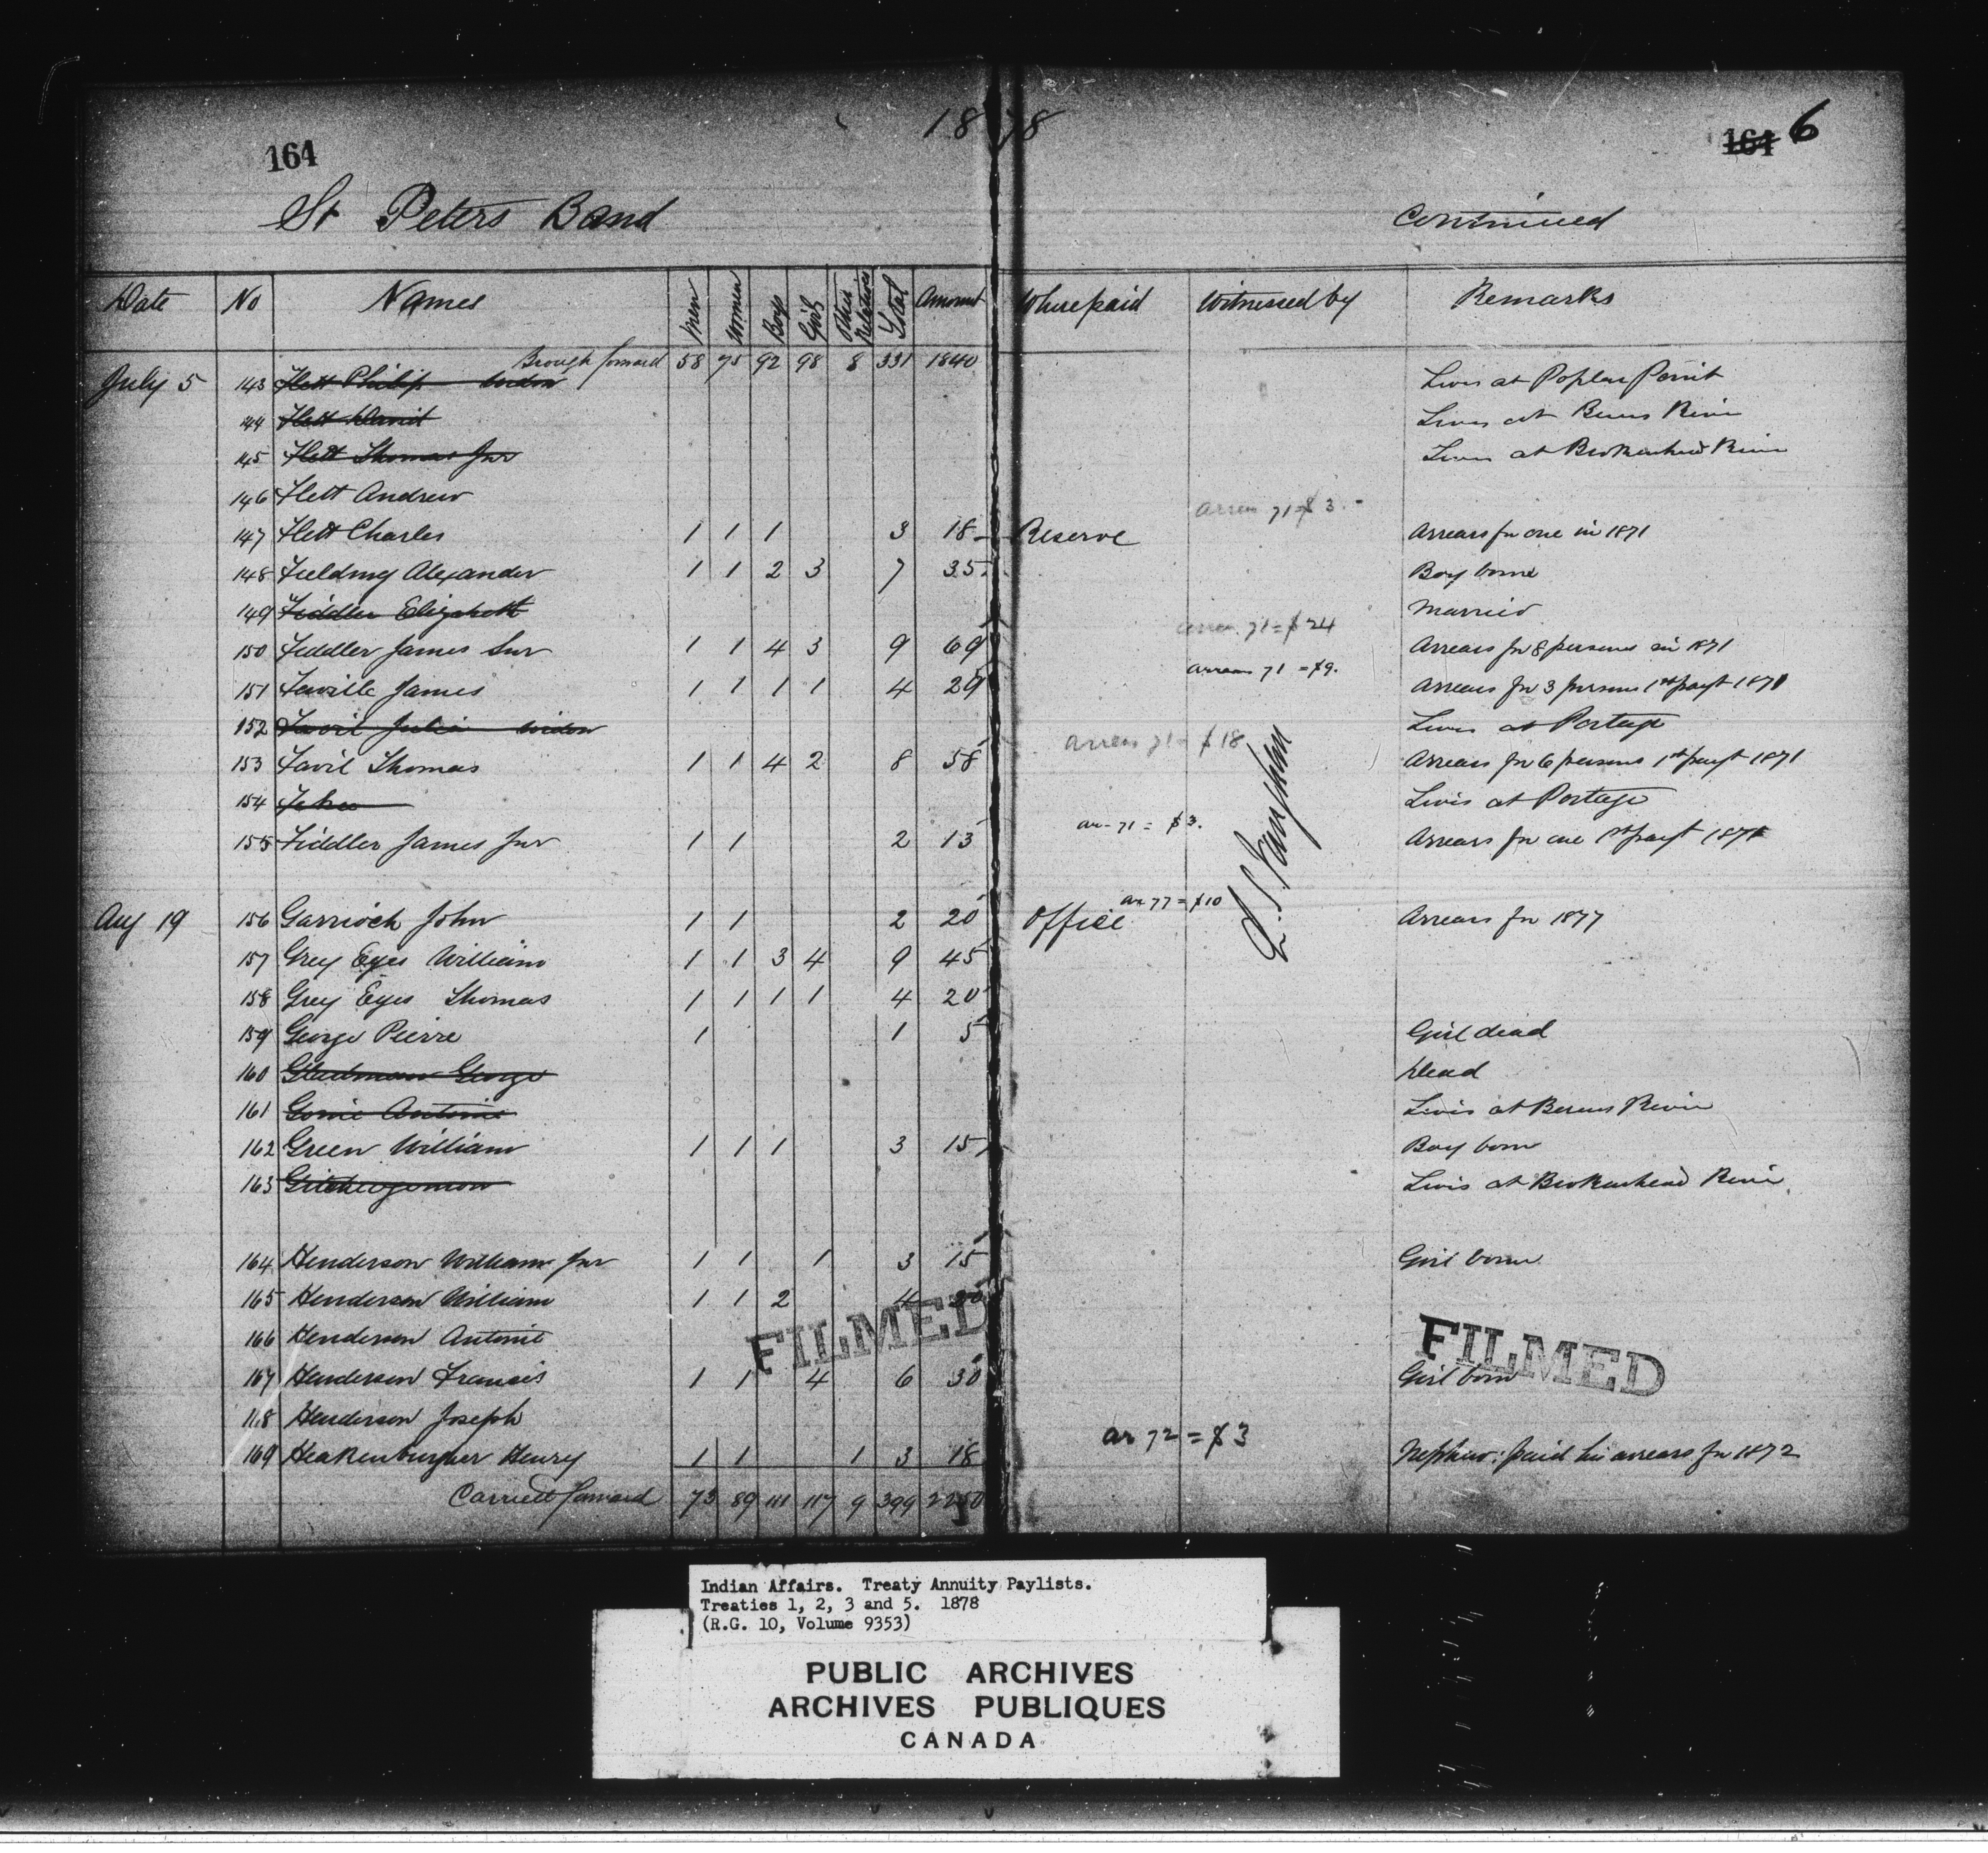 1878
164
164 6
St Peters Band
Continued
Date No Names Men Women Boys Girls Other Relatives Total Amount Where paid Witnessed by Remarks
Brough forward 58 75 92 98 8 331 1840
July 5 143 Flett Philip widow Lives at Poplar Point
144 Flett David Lives at Berens River
145 Flett Thomas Jnr Lives at Brokenhead River
146 Flett Andrew
arrears 71 = $3.-
147 Flett Charles 1 1 1 3 18 Reserve Arrears for one in 1871
148 Fielding Alexander 1 1 2 3 7 35 Boy born
149 Fiddler Elizabeth Married
arrears 71 = $24
150 Fiddler James Snr 1 1 4 3 9 69 Arrears for 8 persons in 1871
arrears 71 = $9.
151 Faville James 1 1 1 1 4 29 Arrears for 3 persons 1st payt 1871
152 Favil Julia widow Lives at Portage
arrears 71 = $18
153 Favil Thomas 1 1 4 2 8 58 Arrears for 6 persons 1st payt 1871
154 Lives at Portage
ar- 71 = $3.
155 Fiddler James Jnr 1 1 2 13 Arrears for one 1st payt 1871
ar 77 = $10
Aug 19 156 Garrioch John 1 1 2 20 Office Arrears for 1877
157 Grey Eyes William 1 1 3 4 9 45
158 Grey Eyes Thomas 1 1 1 1 4 20
159 George Pierre 1 1 5 Girl dead
160 George Dead
161 Antoine Lives at Berens River
162 Green William 1 1 1 3 15 Boy born
163 Lives at Brokenhead River
164 Henderson William Jnr 1 1 1 3 15 Girl born
165 Henderson William 1 1 2 4 20
166 Henderson Antoine
FILMED
FILMED
167 Henderson Francis 1 1 4 6 30 Girl born
168 Henderson Joseph
ar 72 = $3
169 Heakenburger Henry 1 1 1 3 18 Nephew: paid his arrears for 1872
Carried forward 73 89 111 117 9 399 2250
Indian Affairs. Treaty Annuity Paylists.
Treaties 1, 2, 3 and 5. 1878
(R.G. 10, Volume 9353)
PUBLIC ARCHIVES
ARCHIVES PUBLIQUES
CANADA